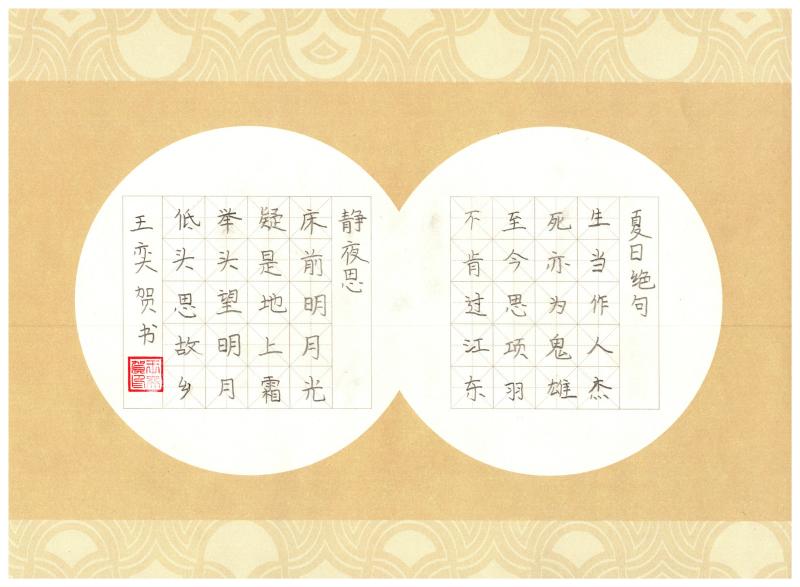 夏日绝句
生当作人杰
死亦为鬼雄
至今思项羽
不肯过江东
静夜思
床前明月光
疑是地上霜
举头望明月
低头思故乡
王奕贺书